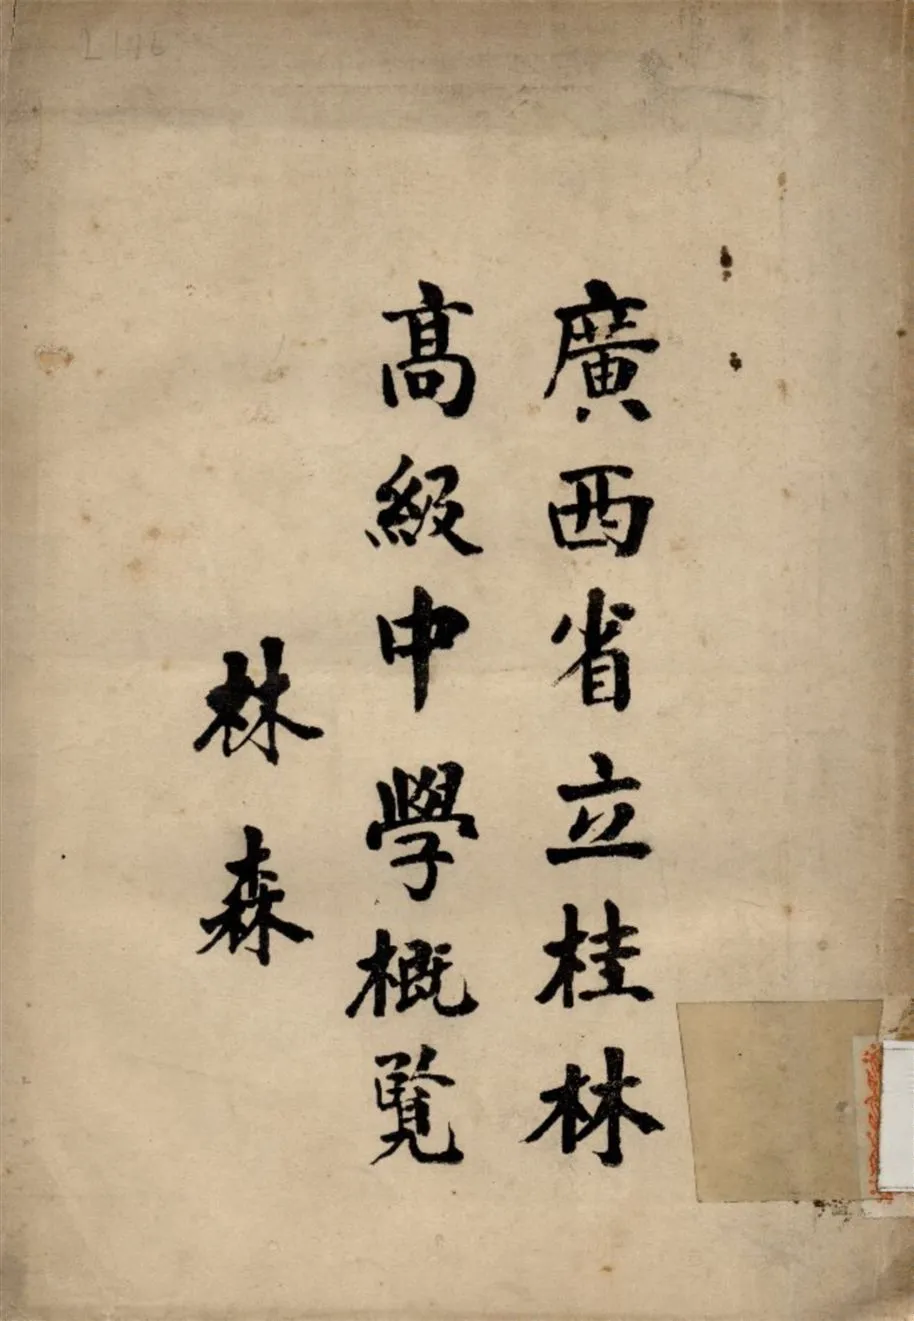 廣西省立桂林
高級中學概覽
林森